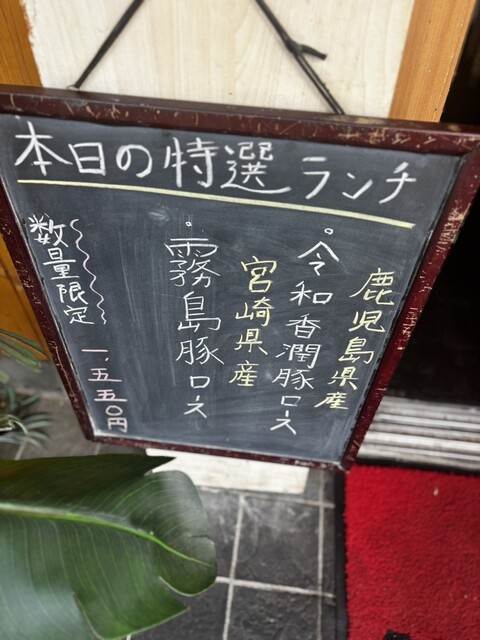 本日の特選ランチ
鹿児島県産
。令和香潤豚ロース
宮崎県産
。霧島豚ロース
数量限定
一、五五〇円